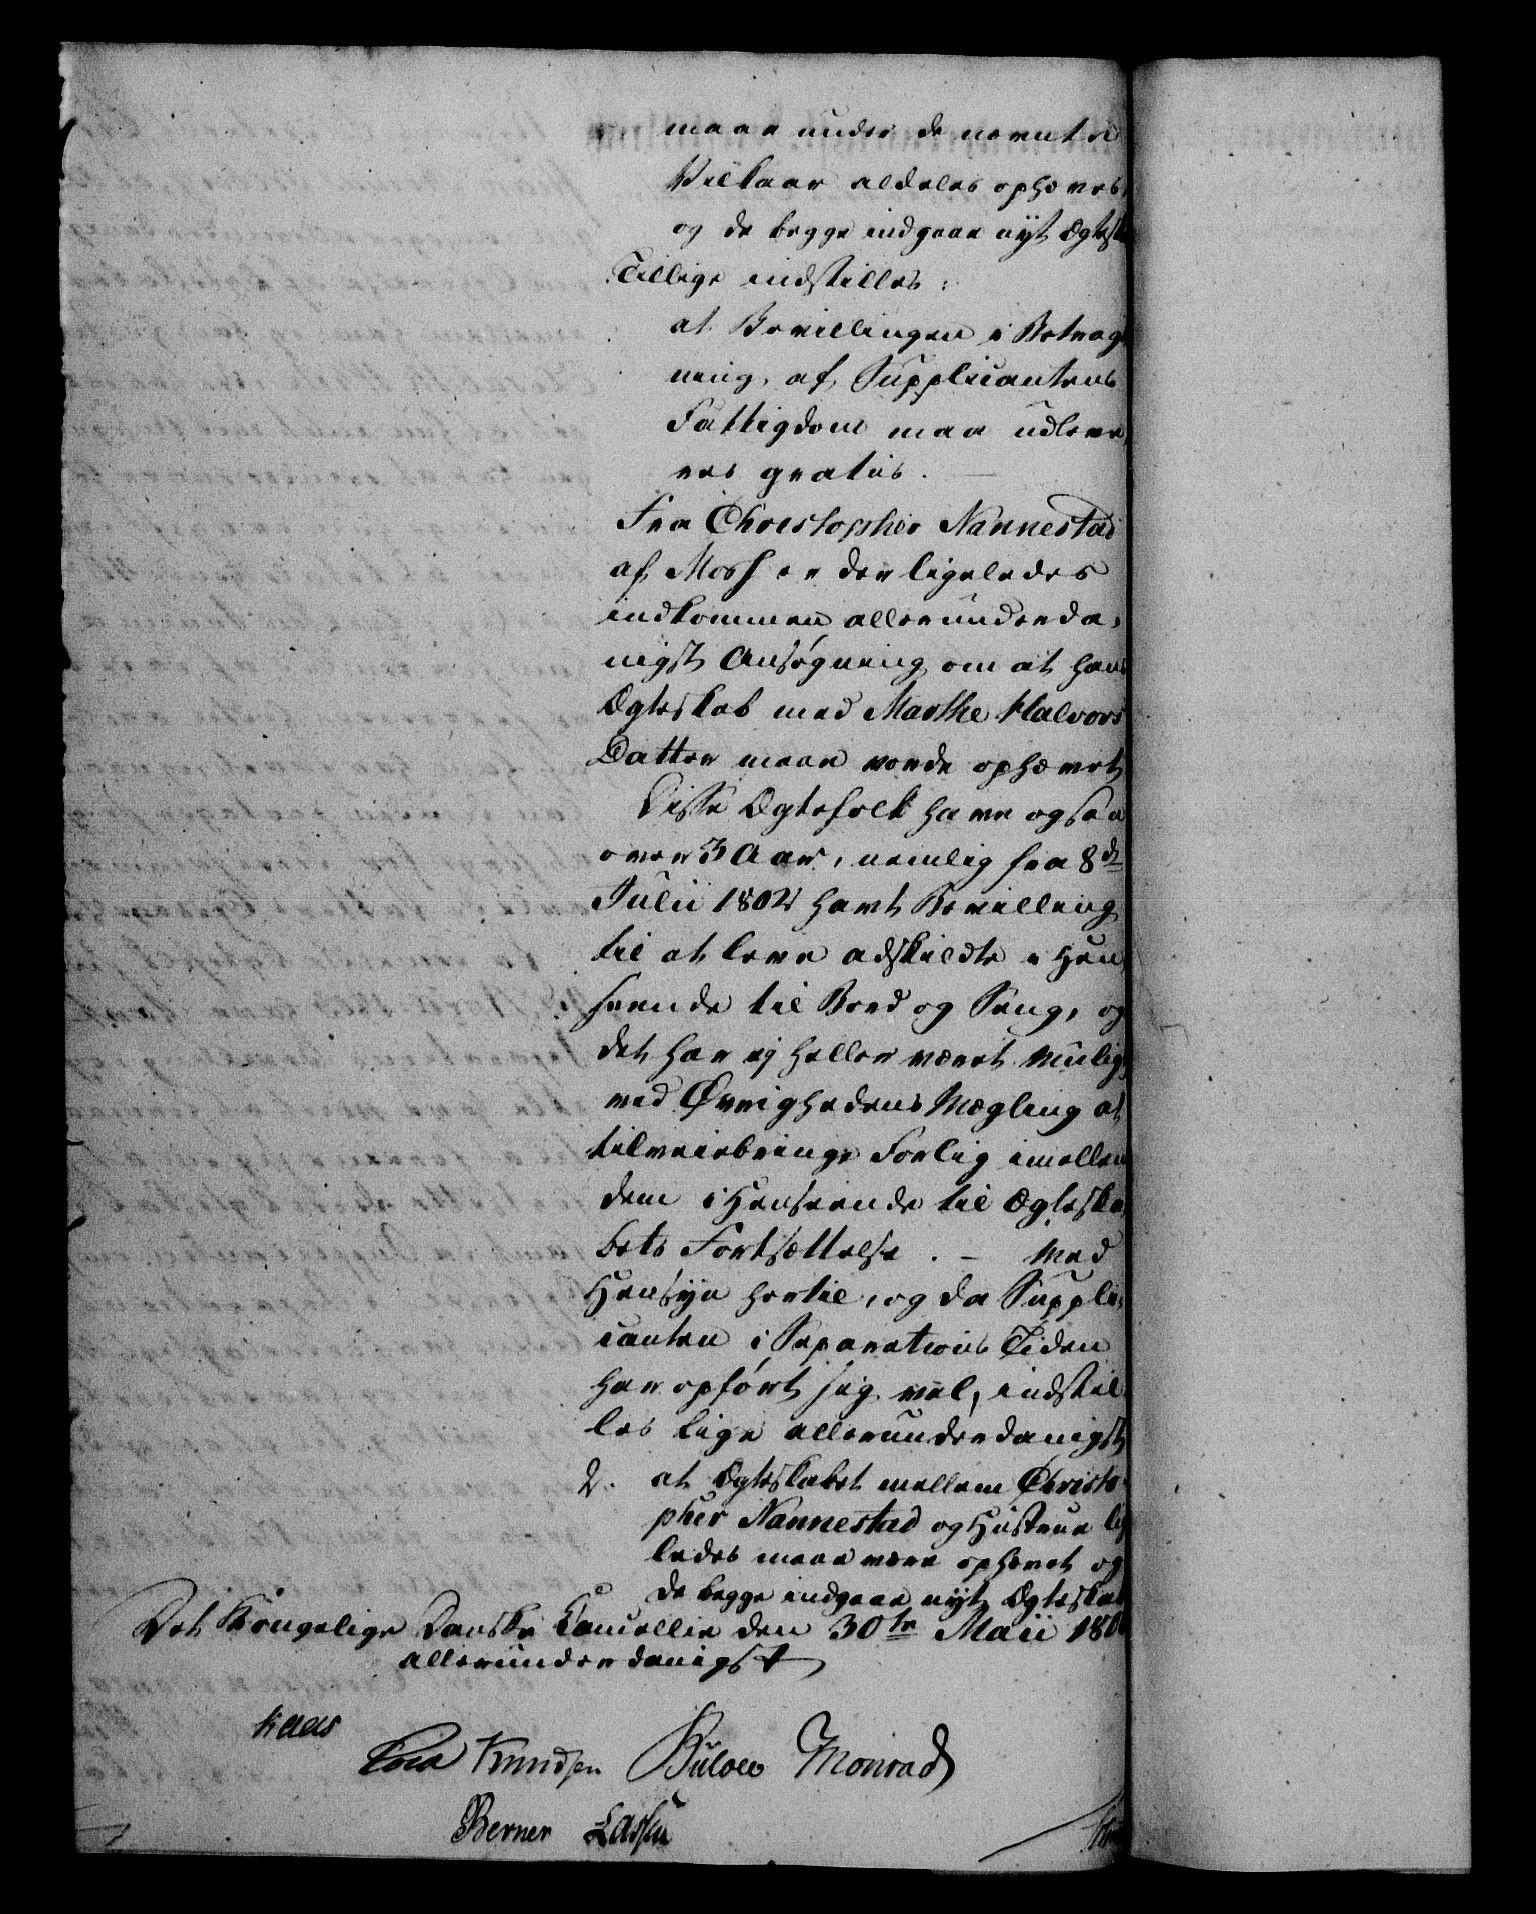 maae under de nævnte
Vilkaar aldeles ophæves
og de begge indgaae nyt Ægtesk
Tillige indstilles:
at Bevillingen i Betrag
ning af Supplicantens
Fattigdom maa udleve
res gratis.
Fra Christopher Nannestad
af Moss er der ligeledes
indkommen allerunderda-
nigst Ansøgning om at hans
Ægteskab med Marthe Halvors
Datter maae vorde ophævet
Disse Ægtefolk have ogsaa
over 3 Aar, nemlig fra 8de
Julii 1802 havt Bevilling
til at leve adskildte i Hen
seende til Bord og Seng, og
det har ej heller været muligt
ved Øvrighedens Mægling at
tilveiebringe Forlig imellem
dem i Henseende til Ægteska
bets Fortsættelse. - Med
Hensyn hertil, og da Suppli-
canten i Separations Tiden
har opført sig vel, indstil
les lige allerunderdanigst
2. at Ægteskabet mellem Christo-
pher Nannestad og Hustrue lig
ledes maae være ophævet og
de begge indgaae nyt Ægteskab
Det Kongelige Danske Cancellie den 30te Maii 180
allerunderdanigst
Kaas
Knudsen Bülow Monrad
Berner Lassen